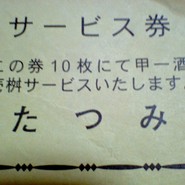 サービス券
この券10枚にて甲一酒
壱桝サービスいたします。
たつみ